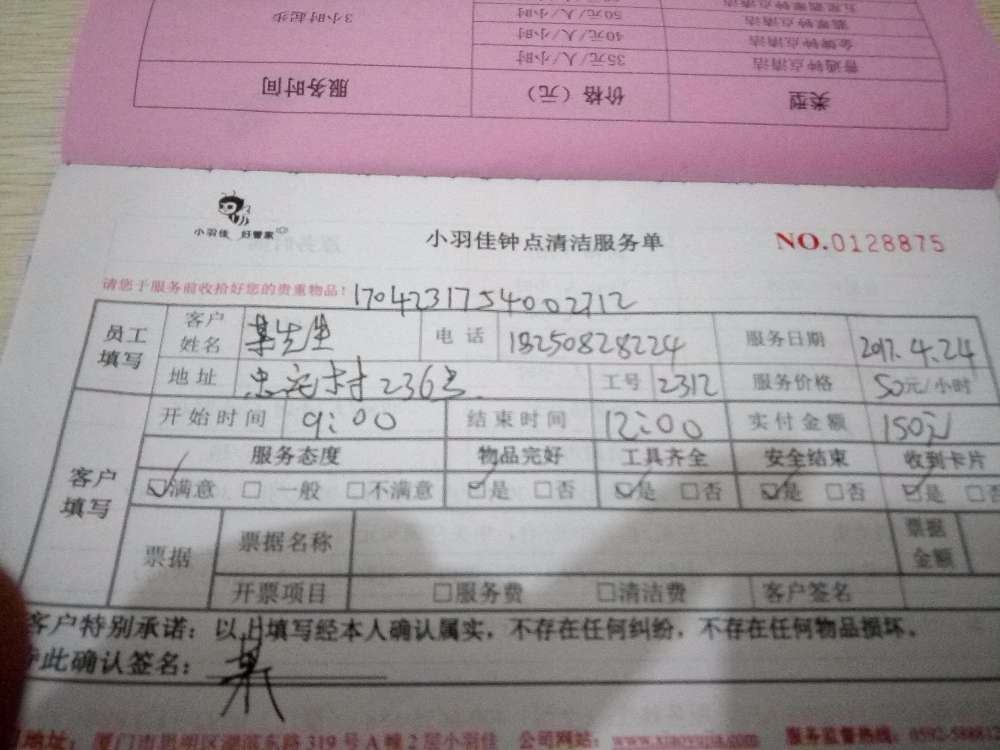 3小时起步
五星翡翠钟点清洁 50元/人/小时
翡翠钟点清洁 50元/人/小时
金牌钟点清洁 40元/人/小时
普通钟点清洁 35元/人/小时
类型 价格（元） 服务时间
小羽佳 好管家
小羽佳钟点清洁服务单
NO.0128875
请您于服务前收拾好您的贵重物品! 1704231754002712
员工填写 客户姓名 某先生 电话 18250828224 服务日期 2017.4.24
地址 236号 工号 2312 服务价格 50元/小时
客户填写 开始时间 9:00 结束时间 12:00 实付金额 150元
服务态度 物品完好 工具齐全 安全结束 收到卡片
☑满意 □一般 □不满意 ☑是 □否 ☑是 □否 ☑是 □否 ☑是 □否
票据 票据名称 票据金额
开票项目 □服务费 □清洁费 客户签名
客户特别承诺：以上填写经本人确认属实，不存在任何纠纷，不存在任何物品损坏。
此确认签名：某
地址：厦门市思明区湖滨东路319号A幢2层小羽佳 公司网站：www.xiaoyujia.com 服务监督热线：0592-588812